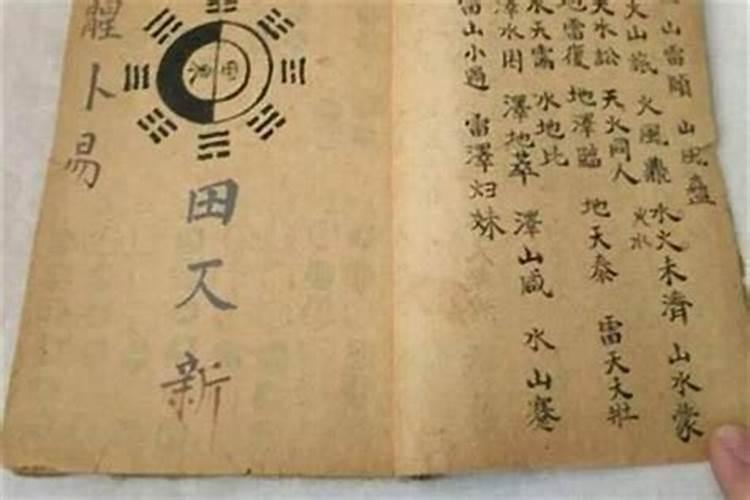 山雷頤 山風蠱
火山旅 火風鼎 火水未濟 山水蒙
天水訟 天火同人
地雷復 地澤臨 地天泰 雷天大壯
水天需 水地比
澤水困 澤地萃 澤山咸 水山蹇
雷山小過 雷澤归妹
田又新
卜易